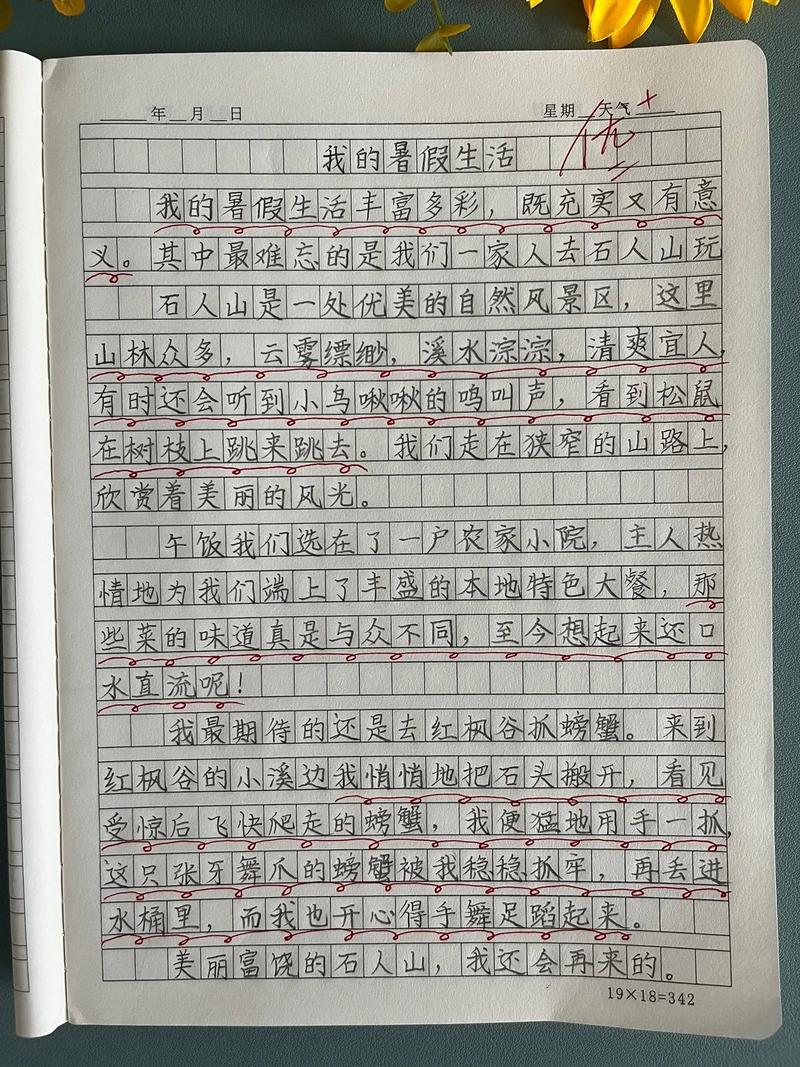 年 月 日 星期 天气
优+
我的暑假生活
我的暑假生活丰富多彩，既充实又有意
义。其中最难忘的是我们一家人去石人山玩
石人山是一处优美的自然风景区，这里
山林众多，云雾缥缈，溪水淙淙，清爽宜人，
有时还会听到小鸟啾啾的鸣叫声，看到松鼠
在树枝上跳来跳去。我们走在狭窄的山路上，
欣赏着美丽的风光。
午饭我们选在了一户农家小院，主人热
情地为我们端上了丰盛的本地特色大餐，那
些菜的味道真是与众不同，至今想起来还口
水直流呢！
我最期待的还是去红枫谷抓螃蟹。来到
红枫谷的小溪边我悄悄地把石头搬开，看见
受惊后飞快爬走的螃蟹，我便猛地用手一抓，
这只张牙舞爪的螃蟹被我稳稳抓牢，再丢进
水桶里，而我也开心得手舞足蹈起来。
美丽富饶的石人山，我还会再来的。
19×18=342